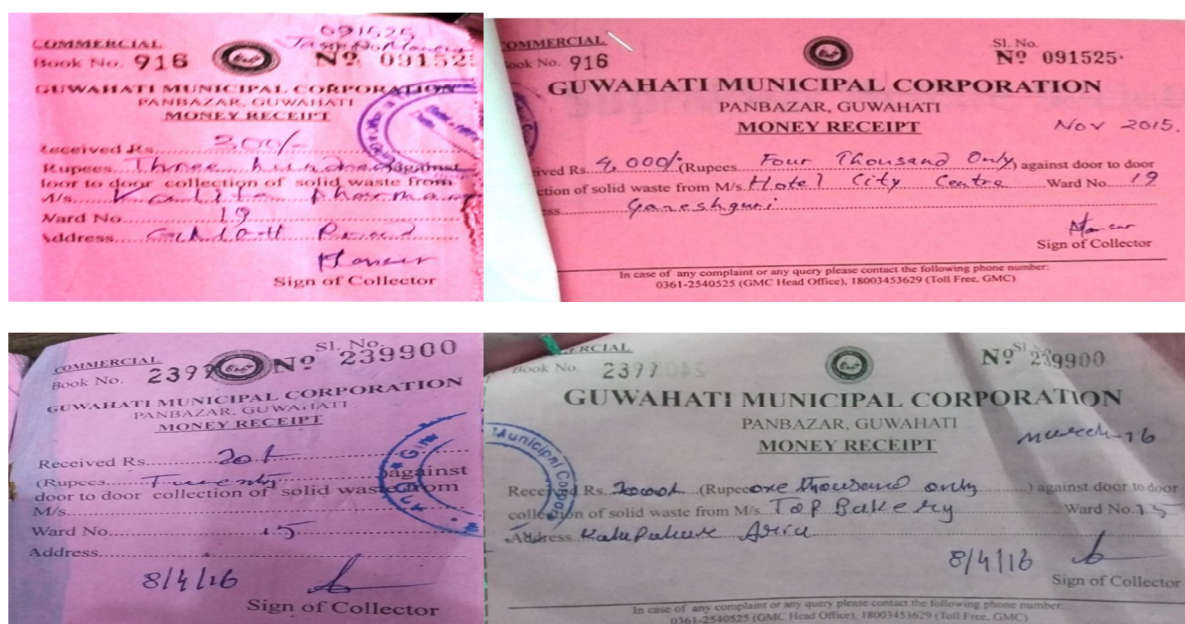 091525
COMMERCIAL
Book No. 916 Nº 09152
GUWAHATI MUNICIPAL CORPORATION
PANBAZAR, GUWAHATI
MONEY RECEIPT
Received Rs. 300/-
Rupees Three hundred against
door to door collection of solid waste from
M/s. Kalita Pharmacy
Ward No. 19
Address
Sign of Collector
COMMERCIAL Sl. No.
Book No. 916 Nº 091525
GUWAHATI MUNICIPAL CORPORATION
PANBAZAR, GUWAHATI
MONEY RECEIPT Nov 2015.
ived Rs. 4,000/- (Rupees Four Thousand Only) against door to door
ction of solid waste from M/s. Hotel City Centre Ward No. 19
ss Ganeshguri
Sign of Collector
In case of any complaint or any query please contact the following phone number:
0361-2540525 (GMC Head Office), 18003453629 (Toll Free, GMC)
COMMERCIAL Sl. No.
Book No. 2399 Nº 239900
GUWAHATI MUNICIPAL CORPORATION
PANBAZAR, GUWAHATI
MONEY RECEIPT
Received Rs. 20/-
(Rupees Twenty against
door to door collection of solid waste from
M/s.
Ward No. 15
Address
8/4/16
Sign of Collector
ERCIAL Sl.
Book No. 2399 Nº 239900
GUWAHATI MUNICIPAL CORPORATION
PANBAZAR, GUWAHATI
MONEY RECEIPT March-16
Municipal Corpor
Received Rs. (Rupee one thousand only ) against door to door
collection of solid waste from M/s Top Bakery Ward No. 15
Address
8/4/16
Sign of Collector
In case of any complaint or any query please contact the following phone number:
0361-2540525 (GMC Head Office), 18003453629 (Toll Free, GMC)